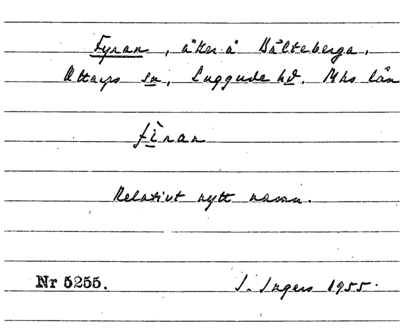 Fyran, åker å Hålteberga,
Ottarps sn, Luggude hd, Mhs län
fìran
Relativt nytt namn.
Nr 5255.
I. Ingers 1955.